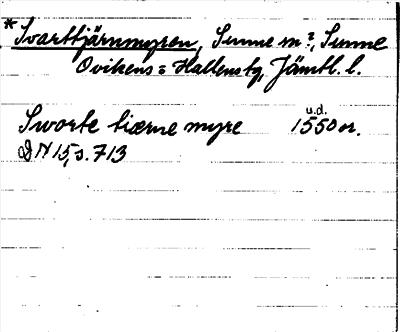 * Svarttjärnmyren, Sunne m?, Sunne
Ovikens = Hallens tg, Jämtl. l.
u.d.
Sworte tiærne myre 1550 nr.
DN 15, s. 713